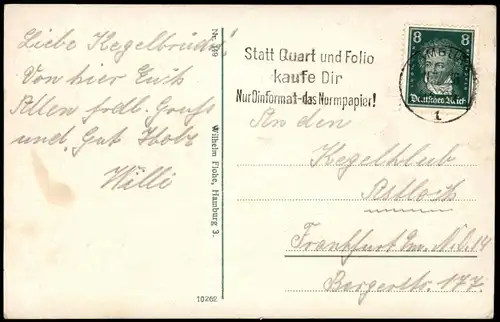 Liebe Kegelbrüder!
Von hier Euch
Allen frdl. Gruß
und "Gut Holz"
Willi
Nr. 139
Wilhelm Flohe, Hamburg 3.
10262
Statt Quart und Folio
kaufe Dir
Nur Dinformat-das Normpapier!
8 8
Deutsches Reich
1
An den
Kegelklub
Frankfurt/m. N. 14
Bergerstr. 177.